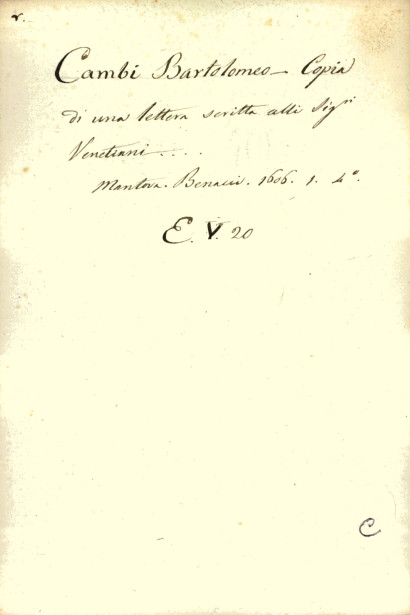 Cambi Bartolomeo - Copia
di una lettera scritta alli Sigri
Venetiani ....
Mantova. Benacci. 1606. 1. 4°.
E. V. 20
C